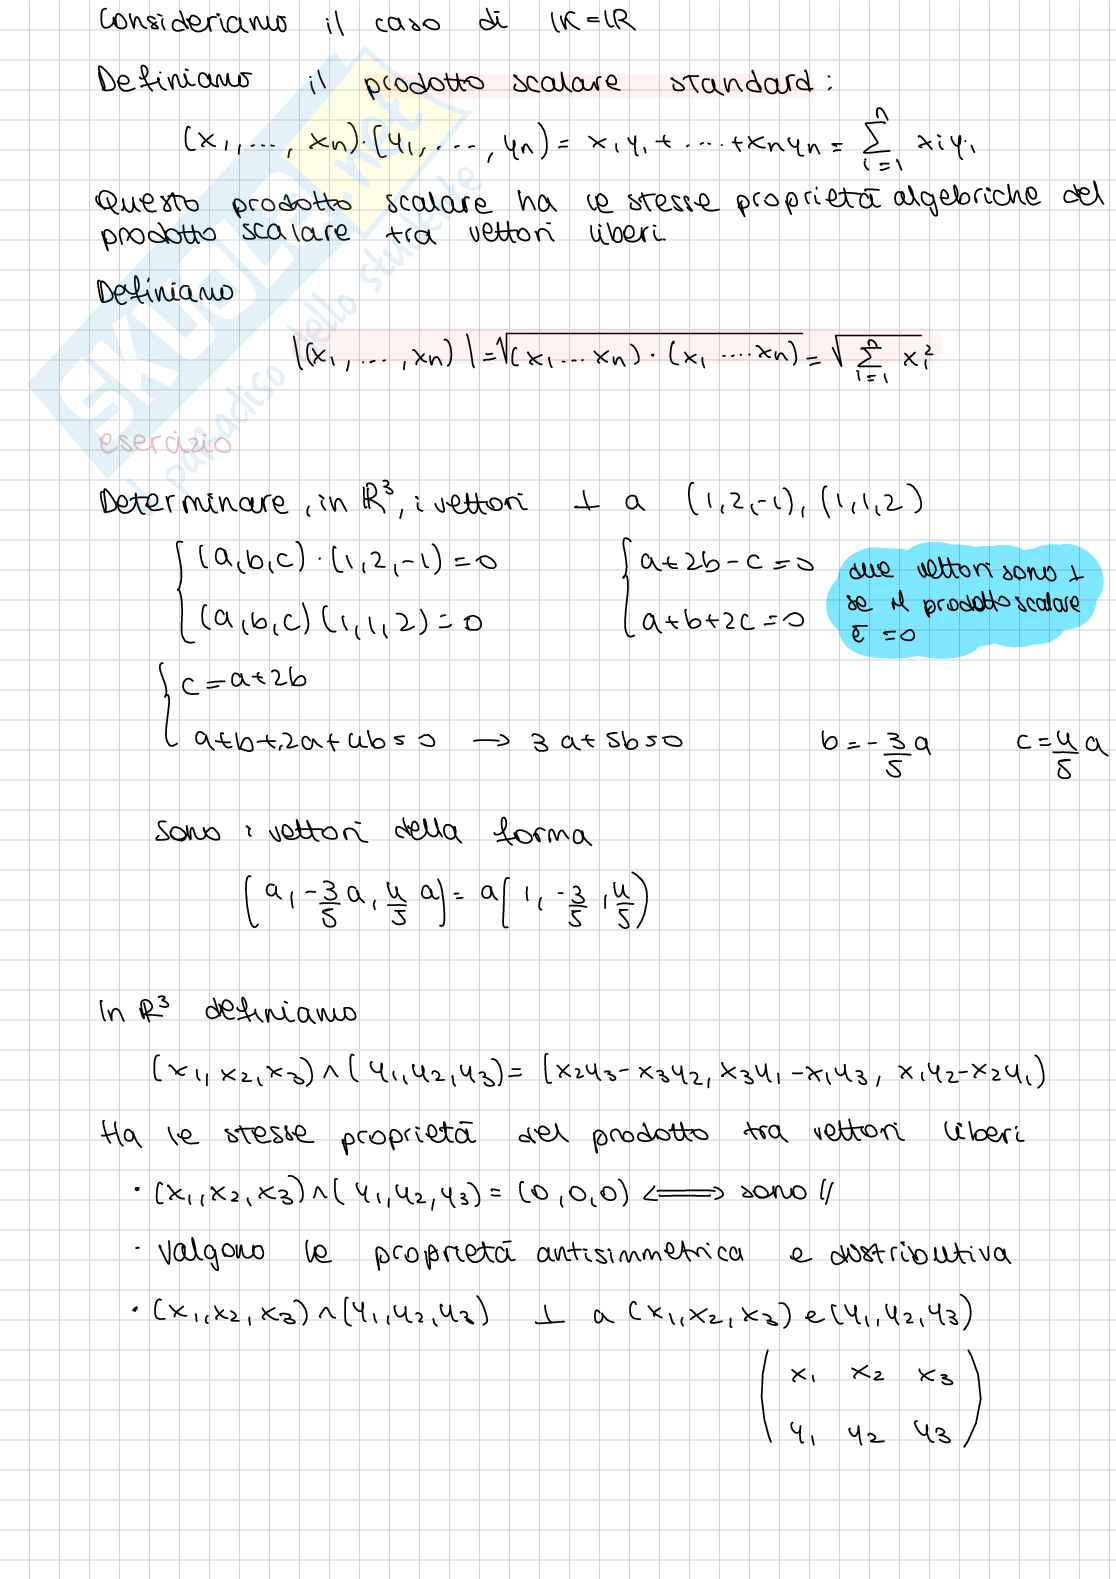 Consideriamo il caso di IK=IR
Definiamo il prodotto scalare standard:
(x₁,..., xn)·(y₁,...,yn)= x₁y₁+....+xnyn= Σⁿᵢ₌₁ xiyi
Questo prodotto scalare ha le stesse proprietà algebriche del
prodotto scalare tra vettori liberi
Definiamo
|(x₁,...,xn)|=√(x₁...xn)·(x₁....xn)=√Σⁿᵢ₌₁ xi²
esercizio
Determinare, in ℝ³, i vettori ⊥ a (1,2,-1),(1,1,2)
{(a,b,c)·(1,2,-1)=0 {a+2b-c=0 due vettori sono ⊥
(a,b,c)(1,1,2)=0 a+b+2c=0 se il prodotto scalare
è =0
{c=a+2b
a+b+2a+4b=0 → 3a+5b=0 b=-3/5a c=4/5a
sono i vettori della forma
(a,-3/5a,4/5a)=a(1,-3/5,4/5)
In ℝ³ definiamo
(x₁,x₂,x₃)∧(y₁,y₂,y₃)=(x₂y₃-x₃y₂,x₃y₁-x₁y₃, x₁y₂-x₂y₁)
Ha le stesse proprietà del prodotto tra vettori liberi
·(x₁,x₂,x₃)∧(y₁,y₂,y₃)=(0,0,0)⟺sono //
·valgono le proprietà antisimmetrica e distributiva
·(x₁,x₂,x₃)∧(y₁,y₂,y₃) ⊥ a (x₁,x₂,x₃)e(y₁,y₂,y₃)
(x₁ x₂ x₃
y₁ y₂ y₃)
SKUOLA.net
il paradiso dello studente